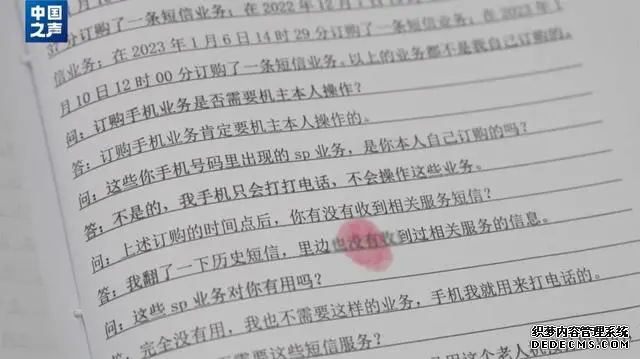 中国
之声
分订购了一条短信业务；在 2022 年 12 月
信业务；在 2023 年 1 月 6 日 14 时 29 分订购了一条短信业务；在 2023 年 1
月 10 日 12 时 00 分订购了一条短信业务。以上的业务都不是我自己订购的。
问：订购手机业务是否需要机主本人操作？
答：订购手机业务肯定要机主本人操作的。
问：这些你手机号码里出现的 sp 业务，是你本人自己订购的吗？
答：不是的，我手机只会打打电话，不会操作这些业务。
问：上述订购的时间点后，你有没有收到相关服务短信？
答：我翻了一下历史短信，里边也没有收到过相关服务的信息。
问：这些 sp 业务对你有用吗？
答：完全没有用，我也不需要这样的业务，手机我就用来打电话的。
需要这些短信服务？
这个老人
织梦内容管理系统
DEDECMS.COM